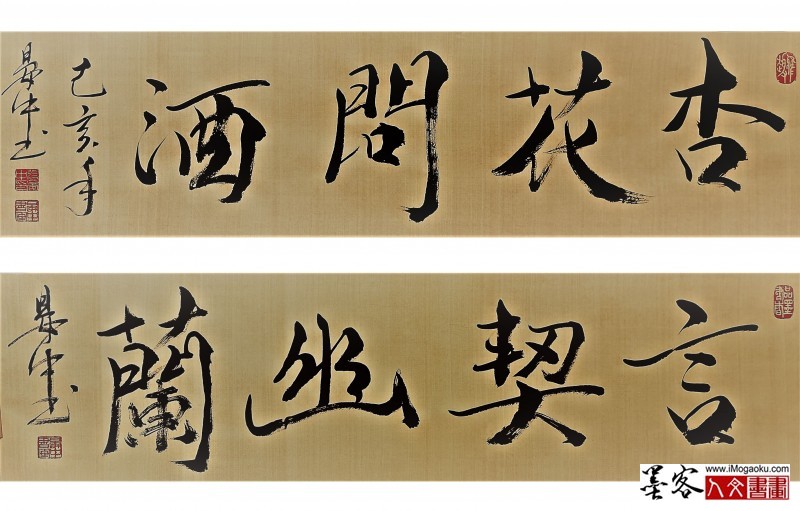 杏花問酒
己亥年
中书
言契幽蘭
中书
墨客
www.iMogaoku.com
人文書畫